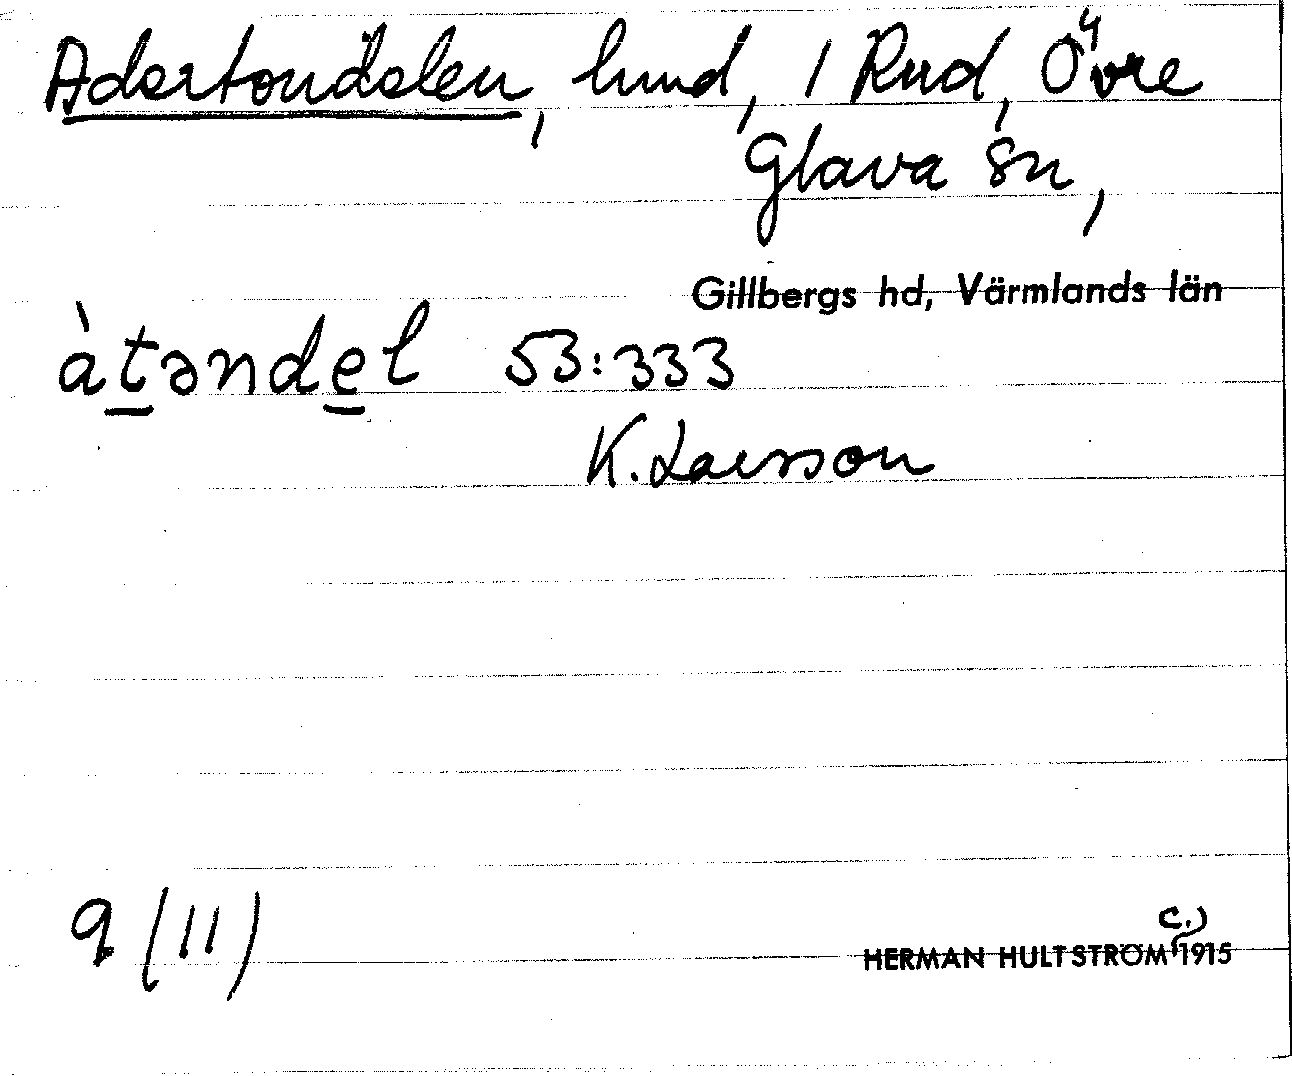 Adertondelen, lund, 1 Rud, Övre
Glava sn,
Gillbergs hd, Värmlands län
àtəndel 53:333
K. Larsson
9 (11)
HERMAN HULTSTRÖM (c.) 1915